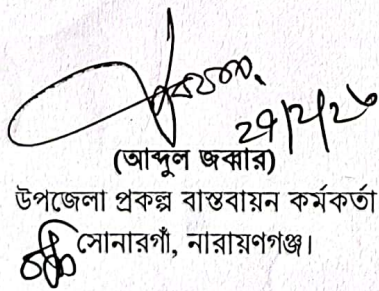 (আব্দুল জব্বার)
উপজেলা প্রকল্প বাস্তবায়ন কর্মকর্তা
সোনারগাঁ, নারায়ণগঞ্জ।